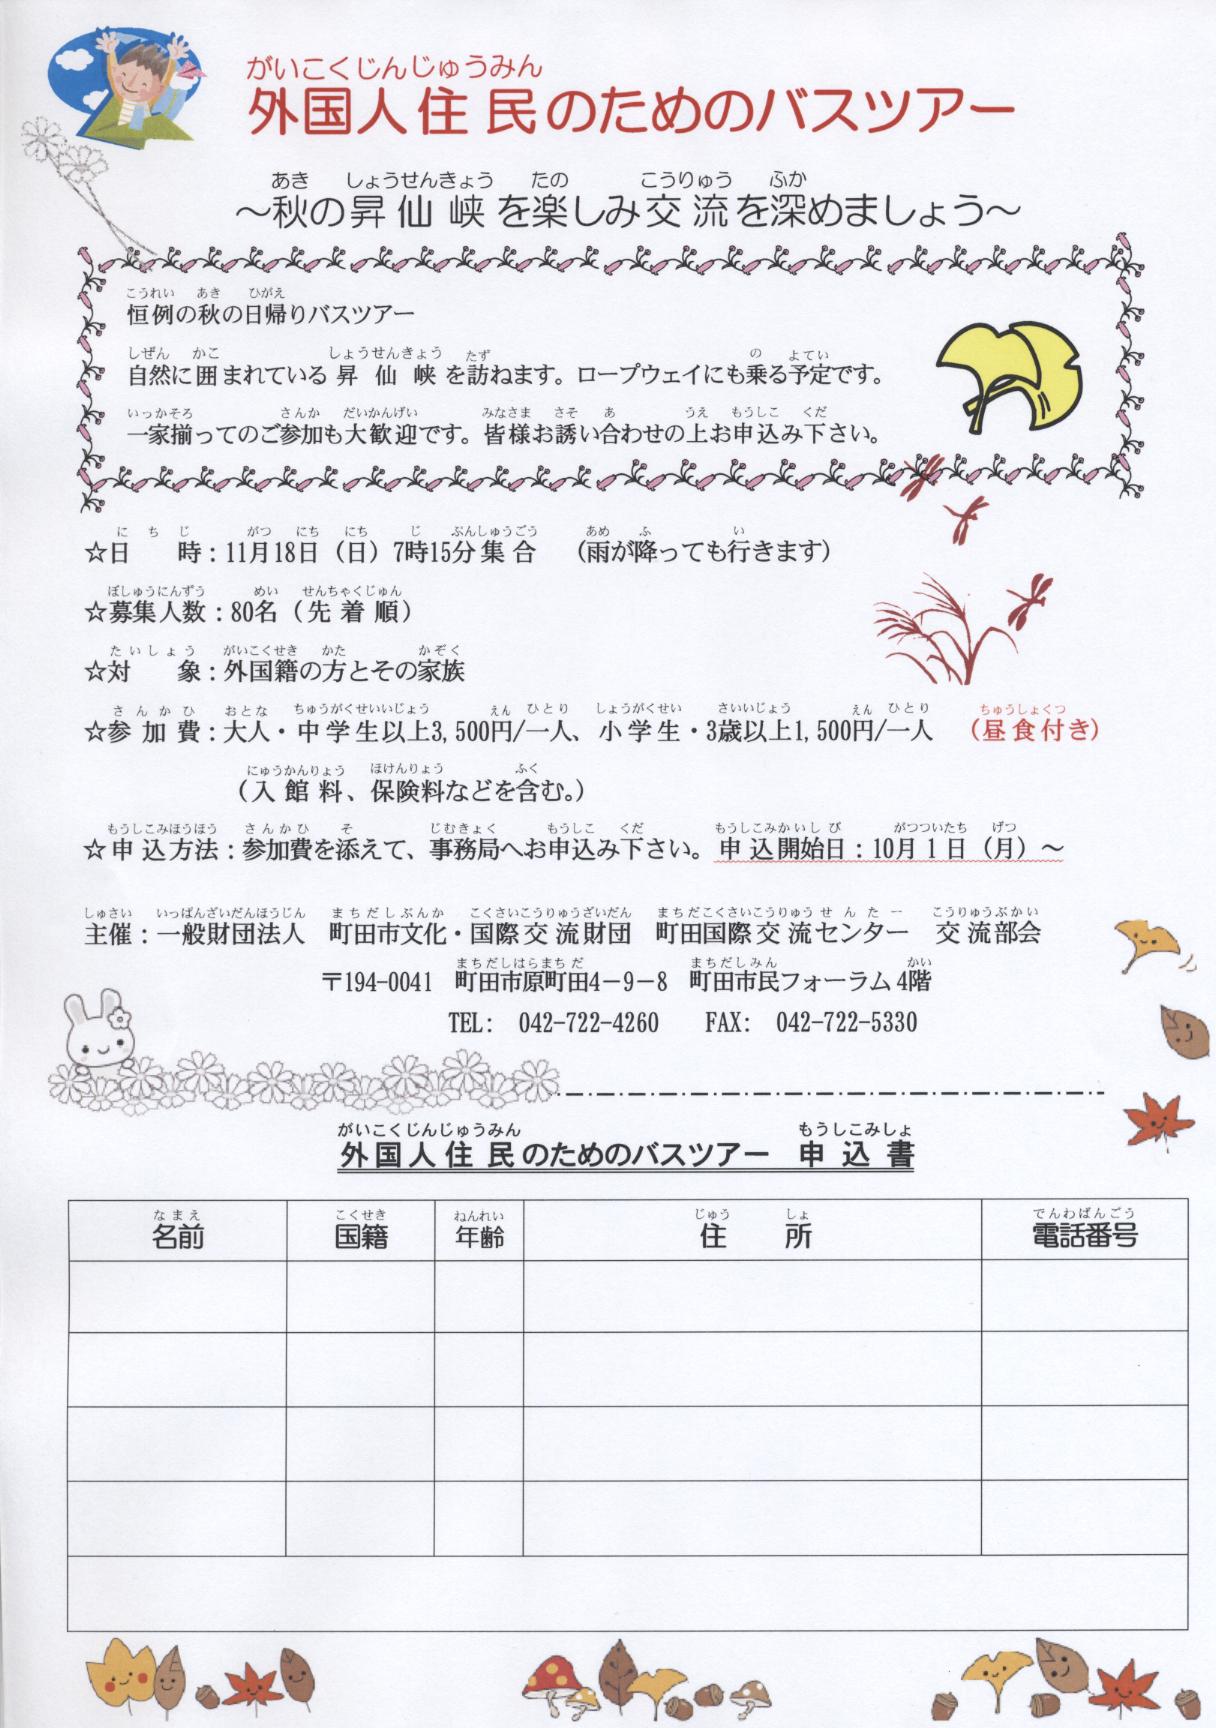 がいこくじんじゅうみん
外国人住民のためのバスツアー
あき しょうせんきょう たの こうりゅう ふか
～秋の昇仙峡を楽しみ交流を深めましょう～
こうれい あき ひがえ
恒例の秋の日帰りバスツアー
しぜん かこ しょうせんきょう たず の よてい
自然に囲まれている昇仙峡を訪ねます。ロープウェイにも乗る予定です。
いっかそろ さんか だいかんげい みなさま さそ あ うえ もうしこ くだ
一家揃ってのご参加も大歓迎です。皆様お誘い合わせの上お申込み下さい。
にちじ がつ にち にち じ ぶんしゅうごう あめ ふ い
☆日 時：11月18日（日）7時15分集合 （雨が降っても行きます）
ぼしゅうにんずう めい せんちゃくじゅん
☆募集人数：80名（先着順）
たいしょう がいこくせき かた かぞく
☆対 象：外国籍の方とその家族
さんかひ おとな ちゅうがくせいいじょう えん ひとり しょうがくせい さいいじょう えん ひとり ちゅうしょくつ
☆参加費：大人・中学生以上3,500円/一人、小学生・3歳以上1,500円/一人 （昼食付き）
にゅうかんりょう ほけんりょう ふく
（入館料、保険料などを含む。）
もうしこみほうほう さんかひ そ じむきょく もうしこ くだ もうしこみかいしび がつついたち げつ
☆申込方法：参加費を添えて、事務局へお申込み下さい。申込開始日：10月1日（月）～
しゅさい いっぱんざいだんほうじん まちだしぶんか こくさいこうりゅうざいだん まちだこくさいこうりゅうせんたー こうりゅうぶかい
主催：一般財団法人 町田市文化・国際交流財団 町田国際交流センター 交流部会
まちだしはらまちだ まちだしみん かい
〒194-0041 町田市原町田4－9－8 町田市民フォーラム4階
TEL： 042-722-4260 FAX： 042-722-5330
がいこくじんじゅうみん もうしこみしょ
外国人住民のためのバスツアー 申込書
なまえ こくせき ねんれい じゅう しょ でんわばんごう
名前 国籍 年齢 住 所 電話番号